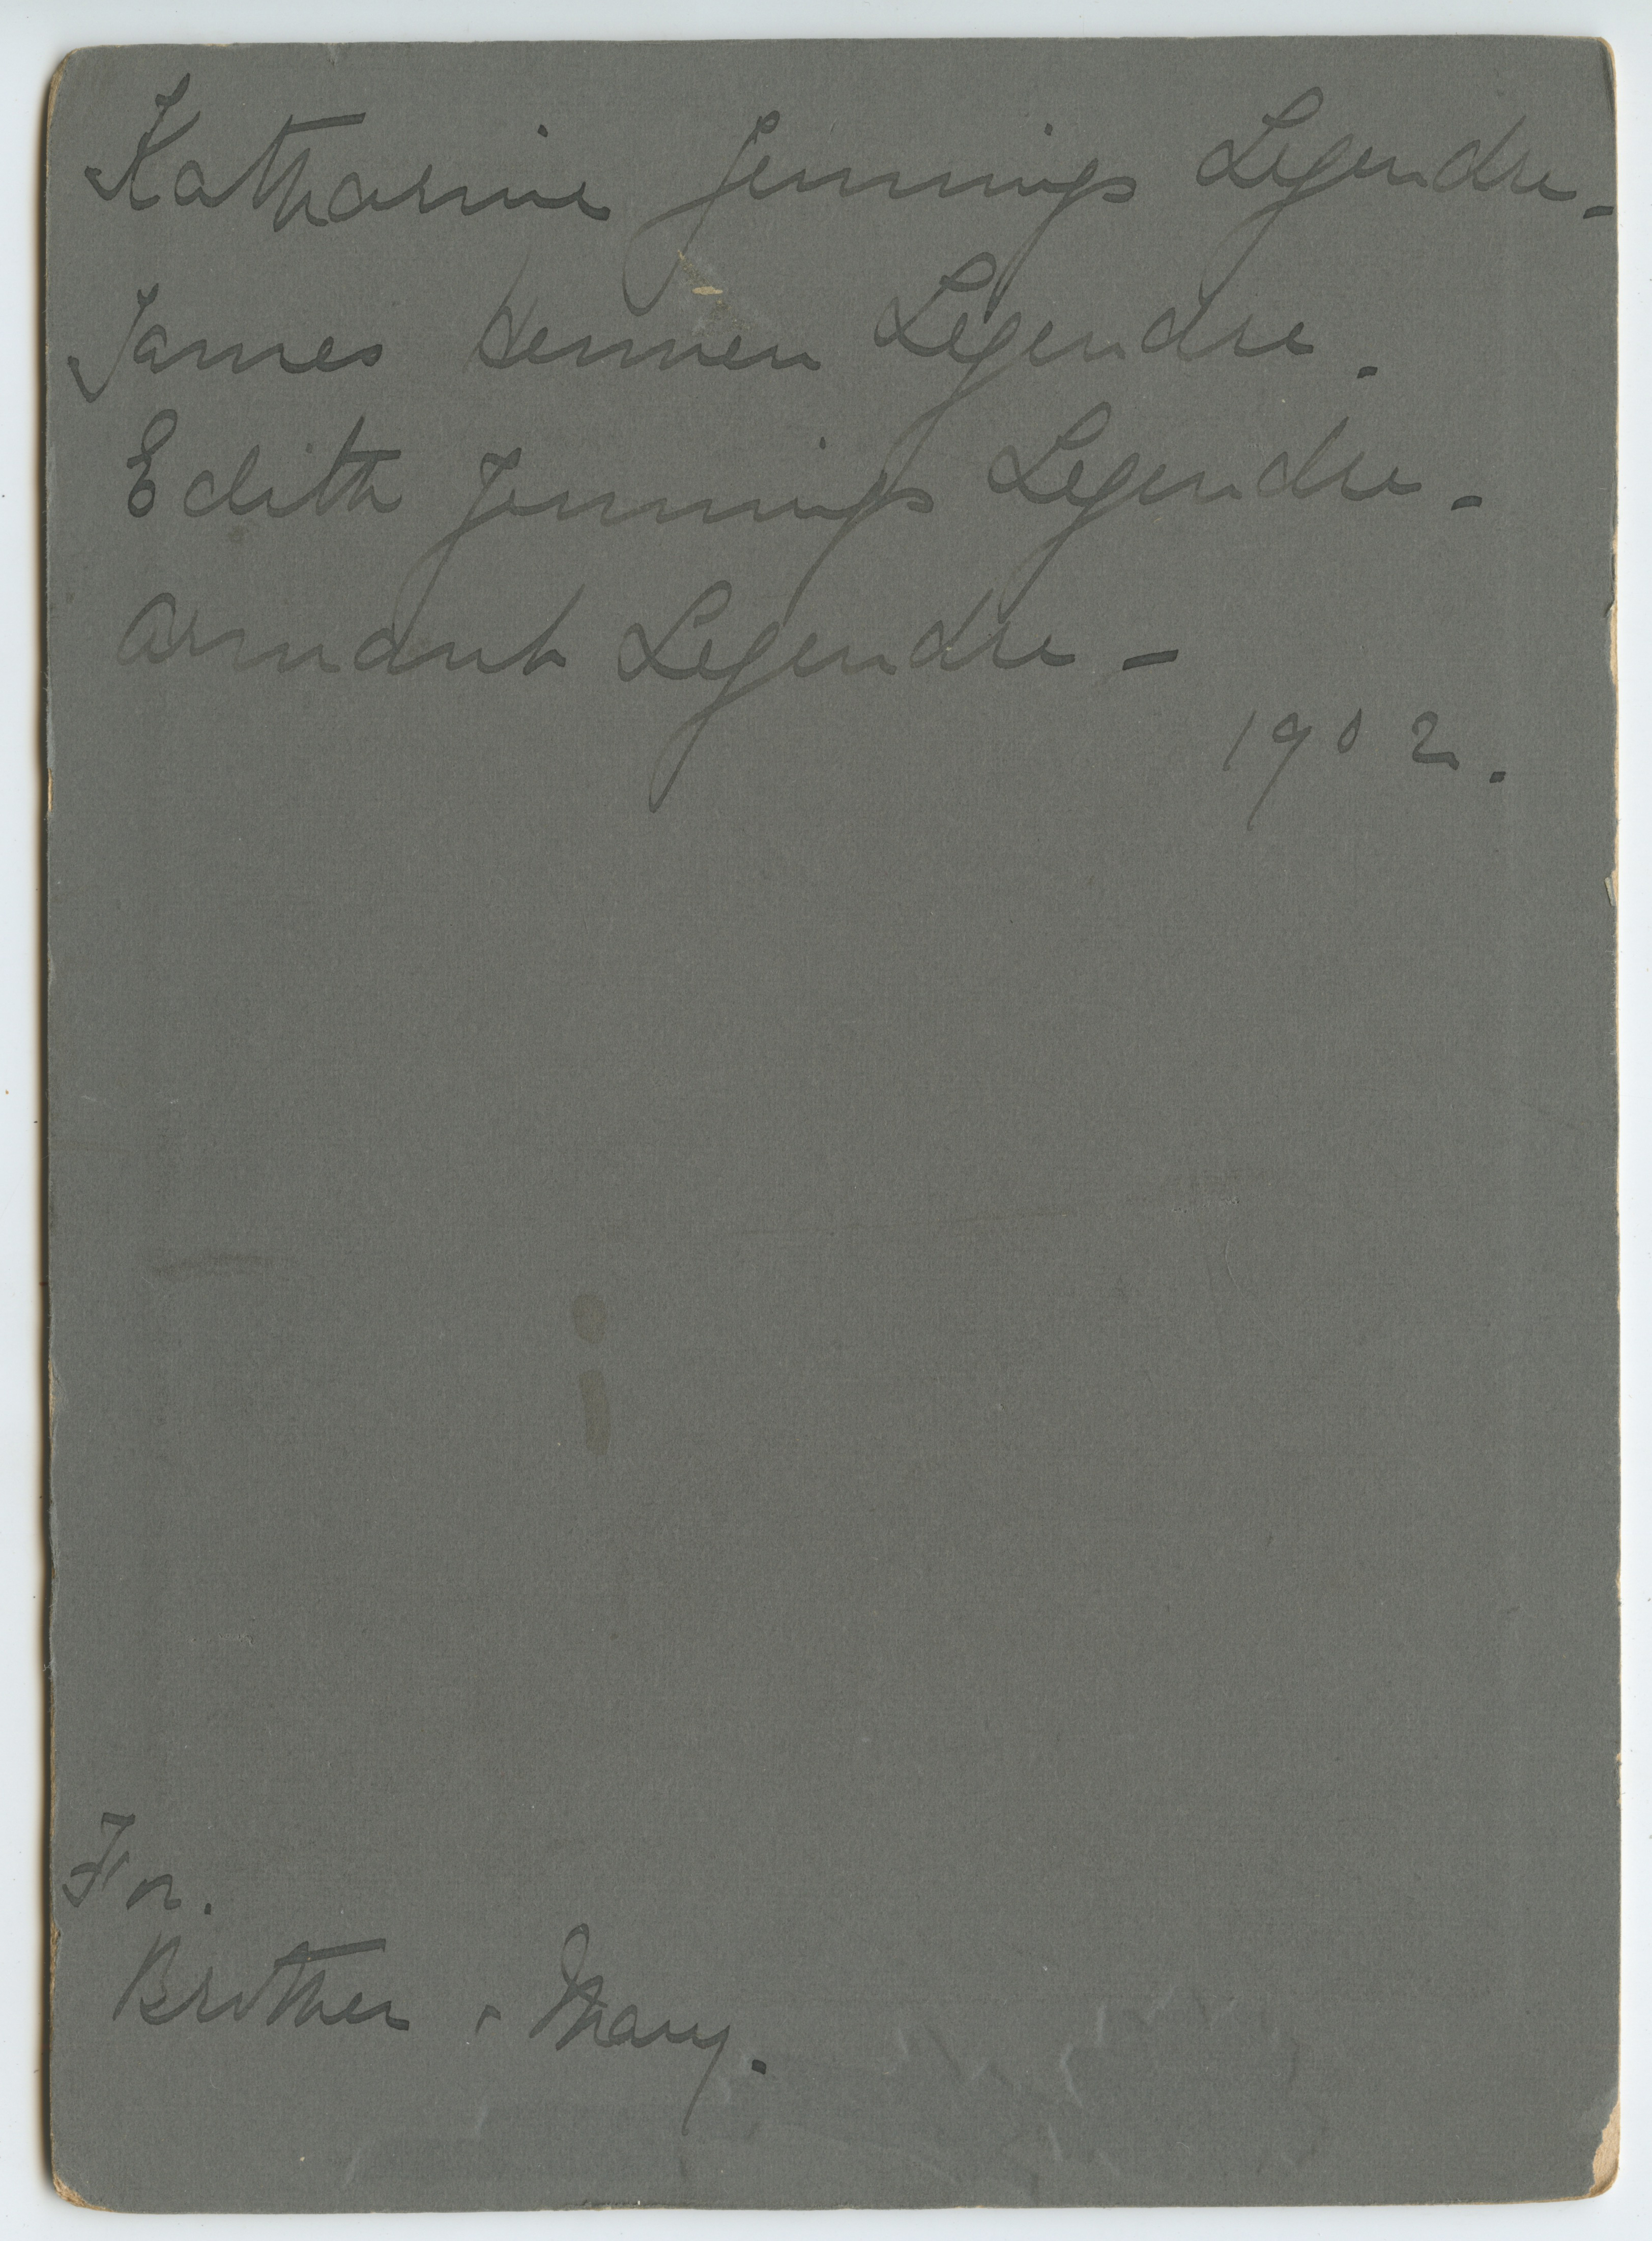 Katharine Jennings Legendre -
James Hennen Legendre.
Edith Jennings Legendre -
Armant Legendre -
1902.
For.
Brother & Mary.